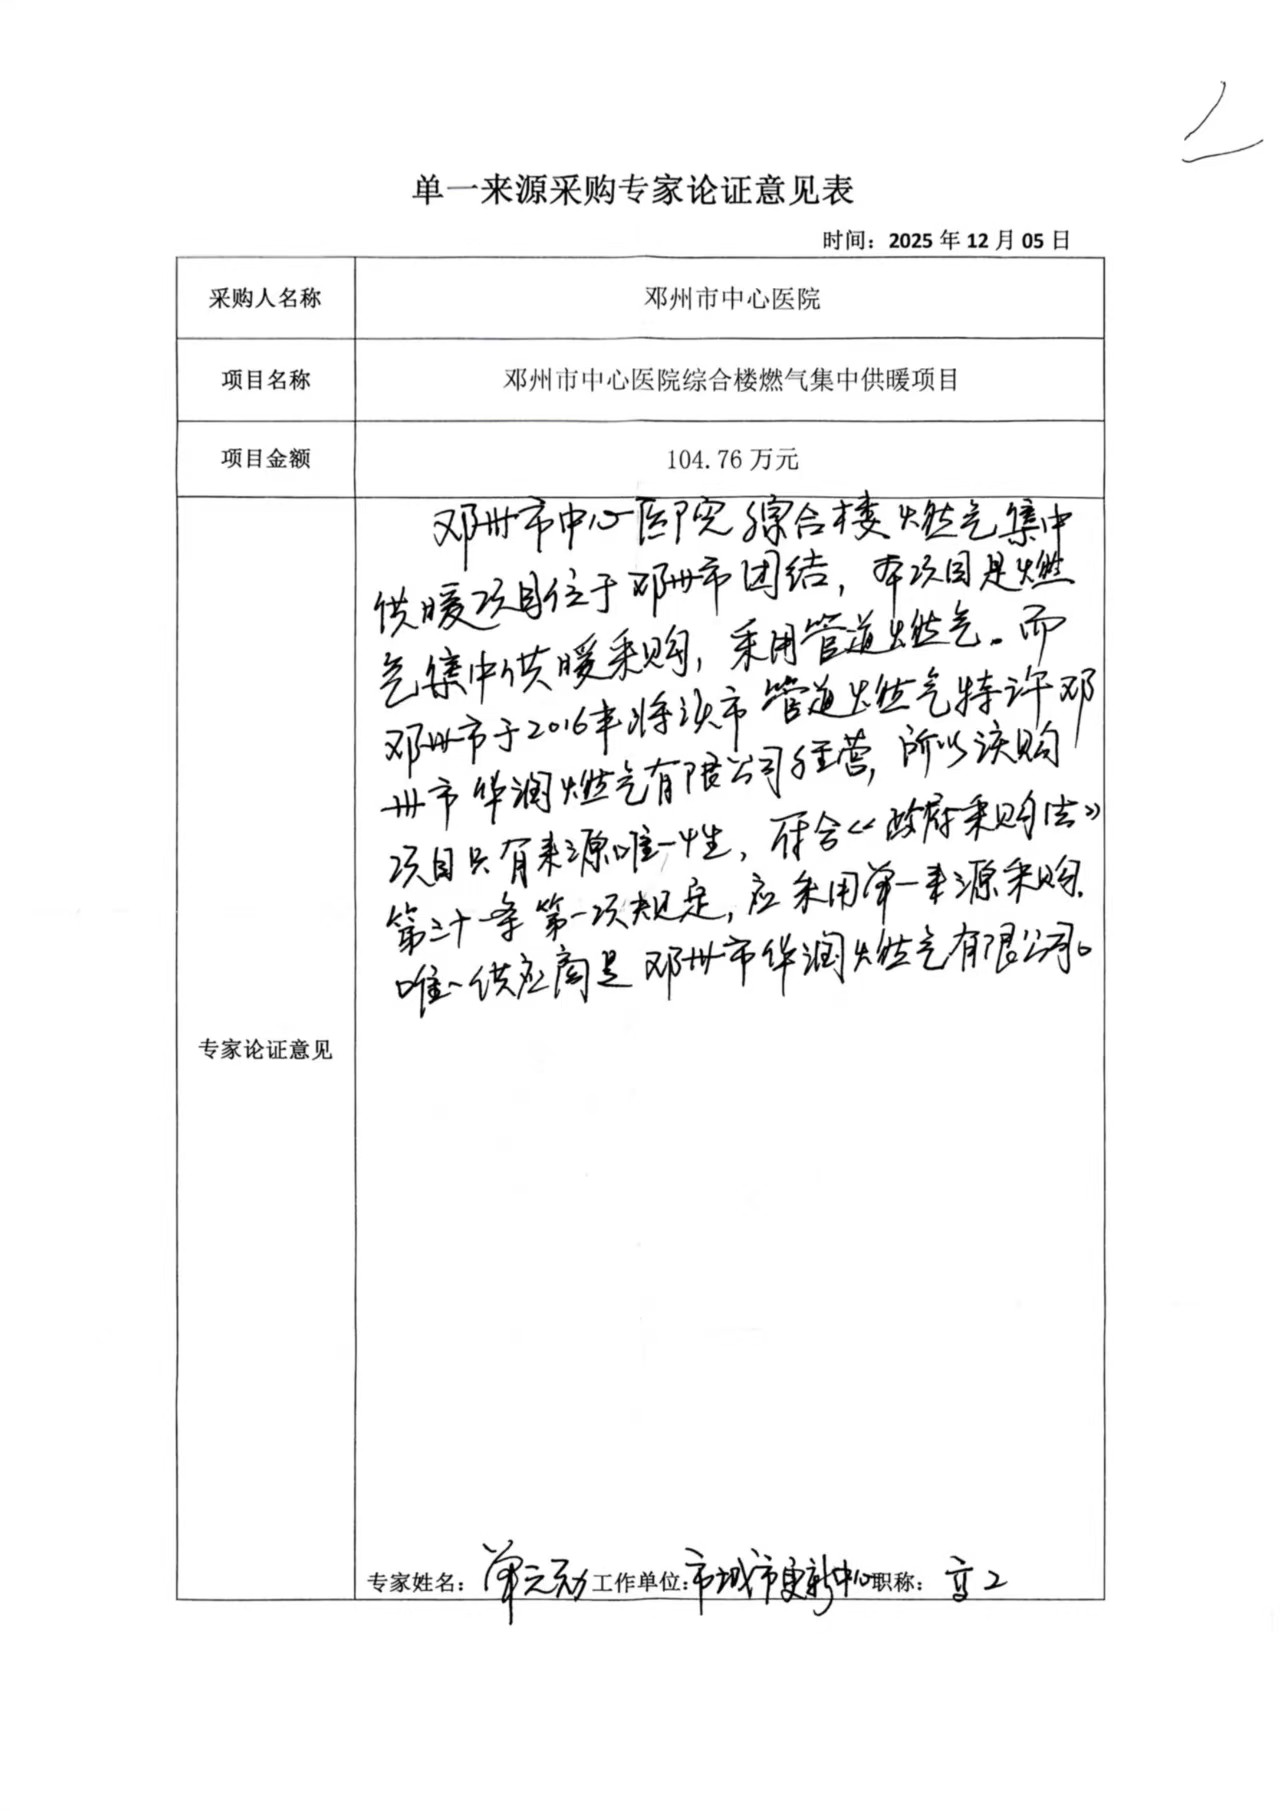 单一来源采购专家论证意见表
时间：2025 年 12 月 05 日
采购人名称
邓州市中心医院
项目名称
邓州市中心医院综合楼燃气集中供暖项目
项目金额
104.76 万元
专家论证意见
邓州市中心医院综合楼燃气集中
供暖项目位于邓州市团结，本项目是燃
气集中供暖采购，采用管道燃气。而
邓州市于2016年将该市管道燃气特许邓
州市华润燃气有限公司经营，所以该购
项目只有来源唯一性，符合《政府采购法》
第三十一条第一项规定，应采用单一来源采购.
唯一供应商是邓州市华润燃气有限公司。
专家姓名： 单元 工作单位：市城市更新中心 职称： 高工